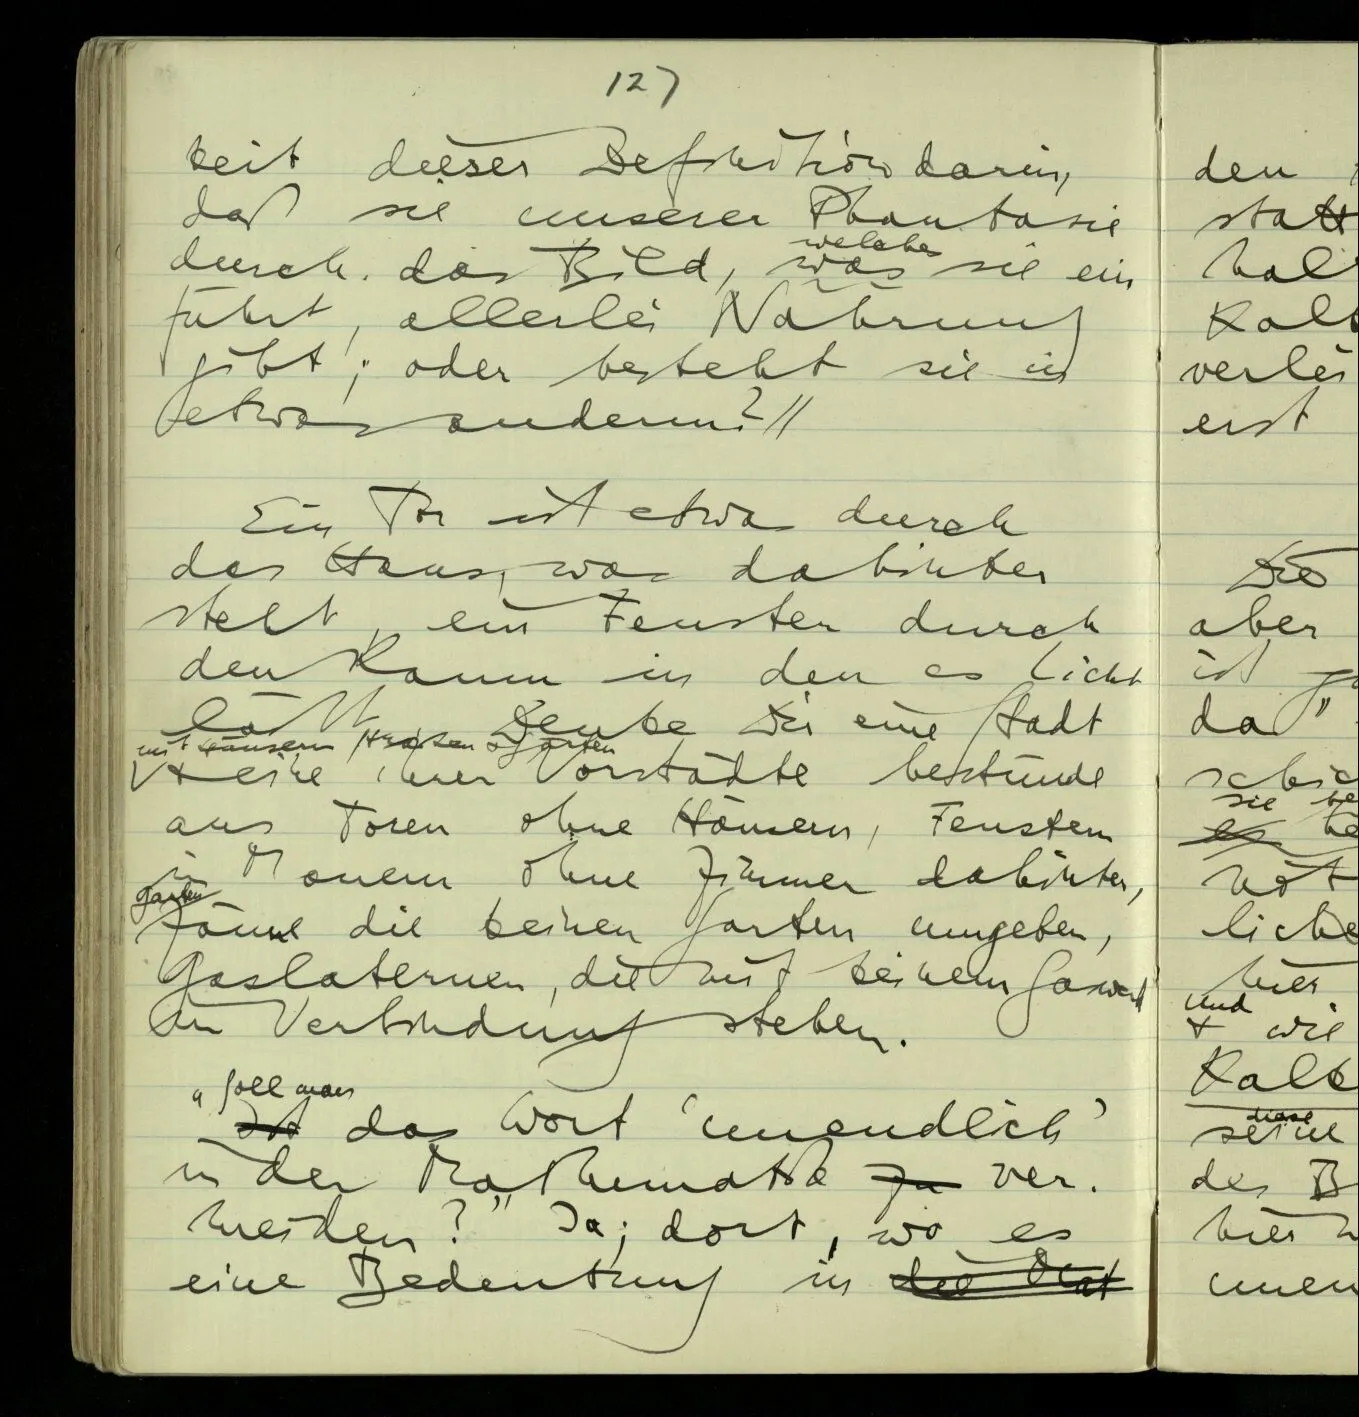 127
keit dieser Definition darin,
daß sie unserer Phantasie
durch das Bild, was sie ein
welches
führt, allerlei Nahrung
gibt; oder besteht sie in
etwas anderm? //
Ein Tor ist etwa durch
das Haus, was dahinter
steht, ein Fenster durch
den Raum in den es Licht
läßt. Denke Dir eine Stadt
mit Häusern, Straßen & Gärten
& eine ihrer Vorstädte bestünde
aus Toren ohne Häusern, Fenstern
in Mauern ohne Zimmer dahinter,
Garten
Zäune die keinen Garten umgeben,
Gaslaternen, die mit keinem Gaswerk
in Verbindung stehen.
„Soll man
Ist das Wort ‘unendlich’
in der Mathematik zu ver-
meiden?” Ja; dort, wo es
eine Bedeutung in die
den
statt
Kalk
erst
Die
aber
ist
da”
sie
es
hier
und
& wie
Kalk
diese
seine
des B
hier
unen